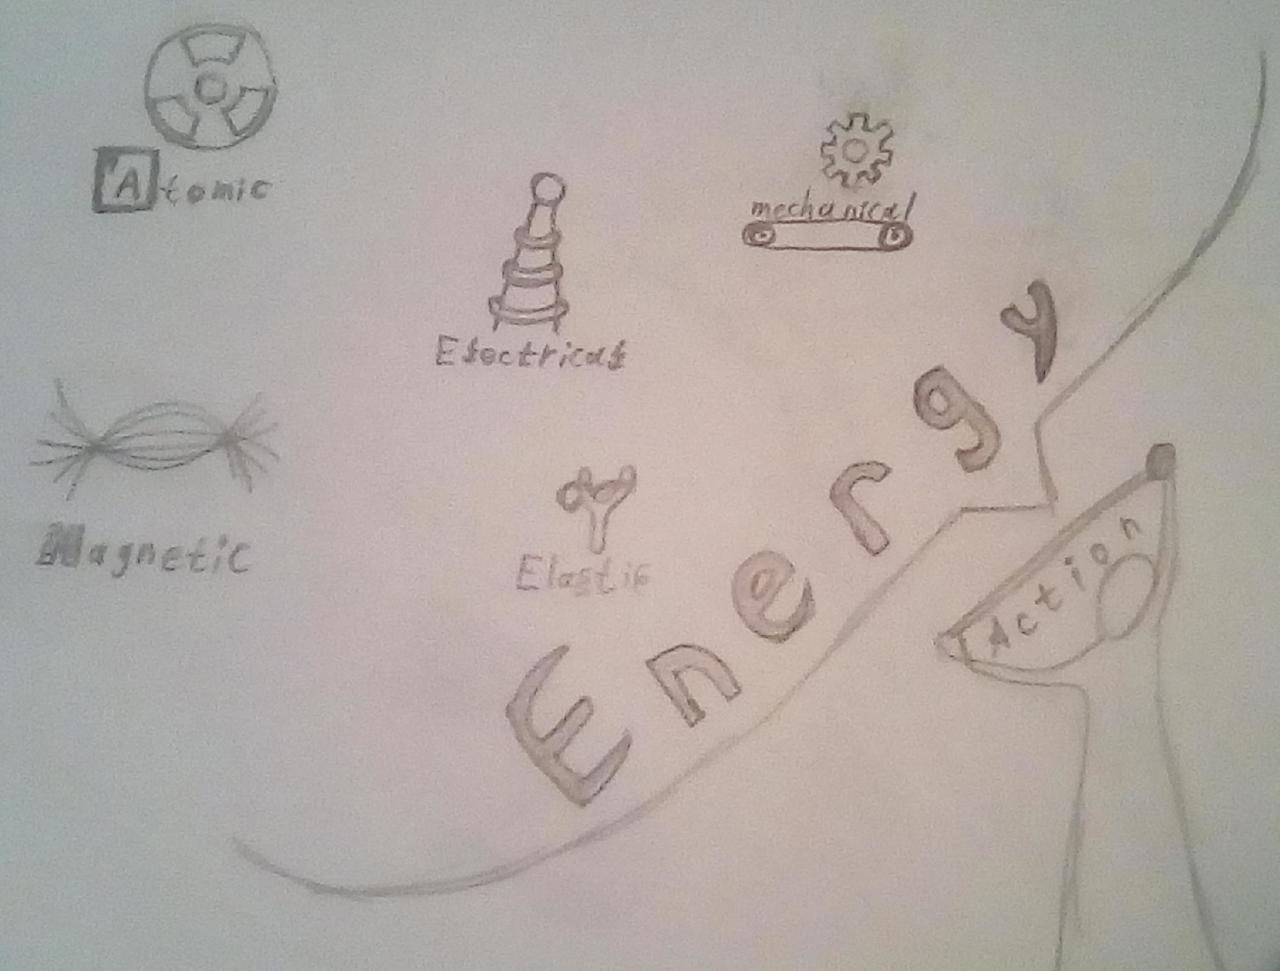 Atomic
mechanical
Electrical
Magnetic
Elastic
Energy
Action